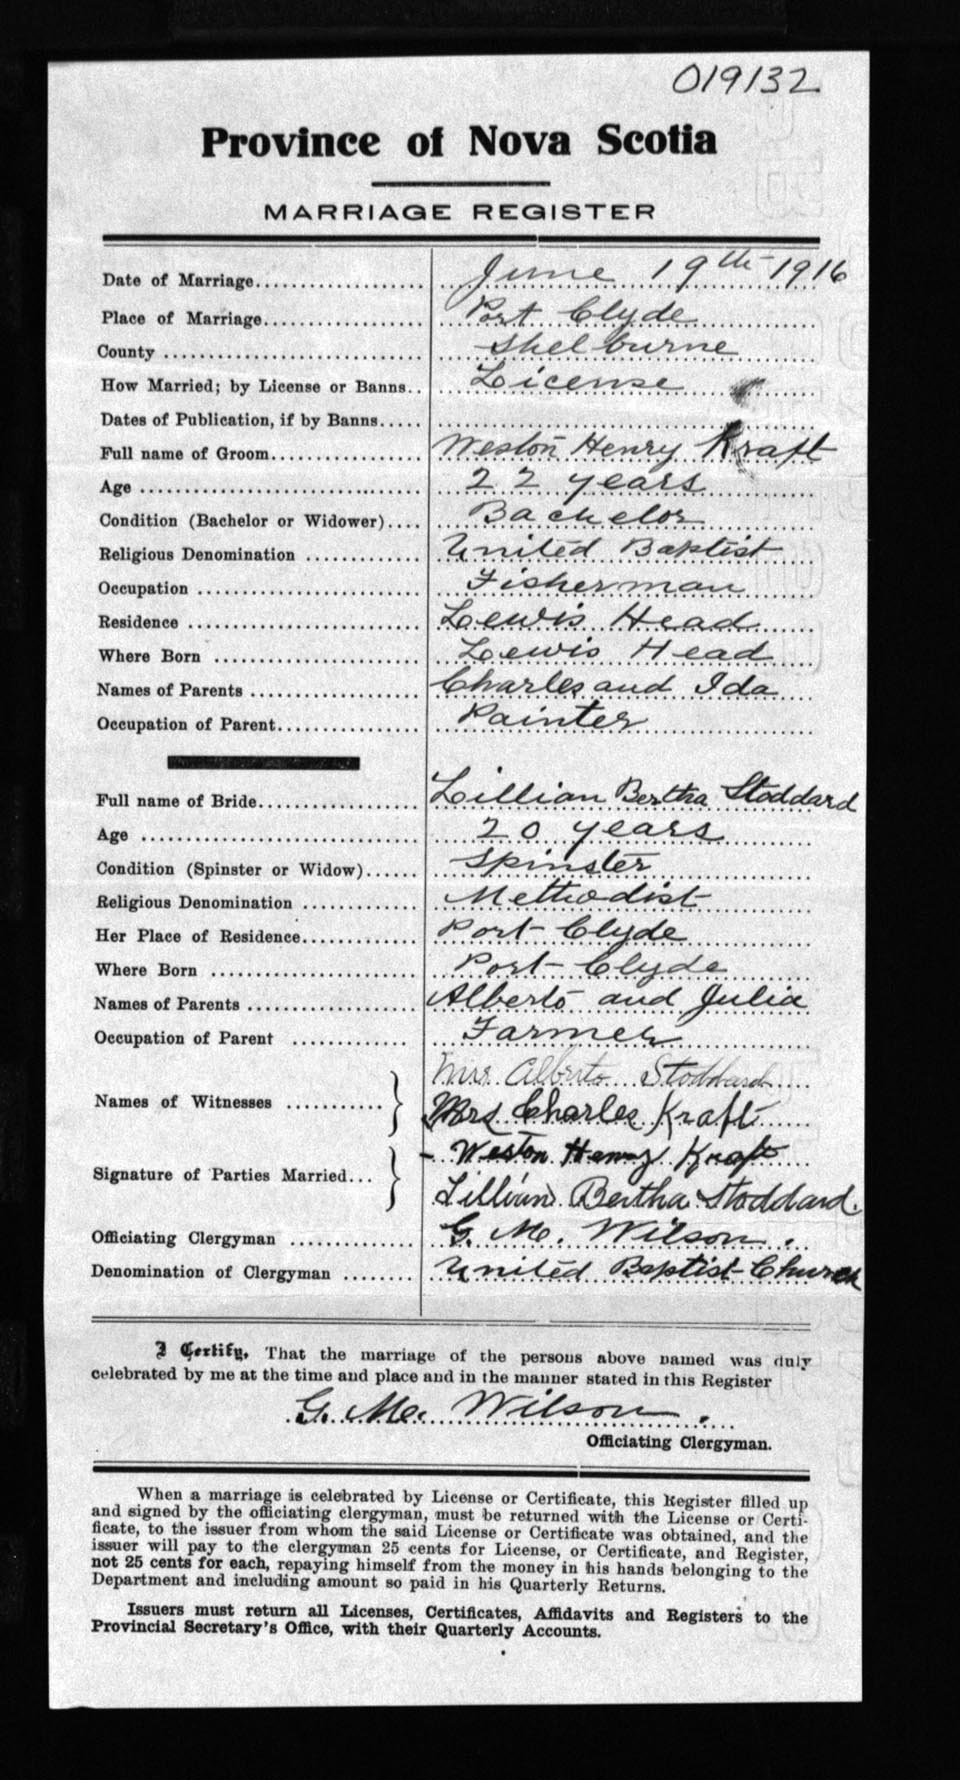 019132
Province of Nova Scotia
MARRIAGE REGISTER
Date of Marriage.................... June 19th 1916
Place of Marriage................... Port Clyde
County .............................. Shelburne
How Married; by License or Banns.. License
Dates of Publication, if by Banns.....
Full name of Groom.................. Weston Henry Kraft
Age ................................. 22 years
Condition (Bachelor or Widower).... Bachelor
Religious Denomination ............. United Baptist
Occupation .......................... Fisherman
Residence ........................... Lewis Head
Where Born ........................ Lewis Head
Names of Parents .................... Charles and Ida
Occupation of Parent................. Painter
Full name of Bride................... Lillian Bertha Stoddard
Age ................................. 20 years
Condition (Spinster or Widow)...... Spinster
Religious Denomination ............. Methodist
Her Place of Residence.............. Port Clyde
Where Born ........................ Port Clyde
Names of Parents .................... Alberto and Julia
Occupation of Parent ............... Farmer
Mrs. Alberto Stoddard
Names of Witnesses ............ Mrs Charles Kraft
Weston Henry Kraft
Signature of Parties Married...
Lillian Bertha Stoddard.
Officiating Clergyman ............... G. M. Wilson.
Denomination of Clergyman ........ United Baptist Church
I Certify, That the marriage of the persons above named was duly
celebrated by me at the time and place and in the manner stated in this Register
G. M. Wilson.
Officiating Clergyman.
When a marriage is celebrated by License or Certificate, this Register filled up
and signed by the officiating clergyman, must be returned with the License or Certi-
ficate, to the issuer from whom the said License or Certificate was obtained, and the
issuer will pay to the clergyman 25 cents for License, or Certificate, and Register,
not 25 cents for each, repaying himself from the money in his hands belonging to the
Department and including amount so paid in his Quarterly Returns.
Issuers must return all Licenses, Certificates, Affidavits and Registers to the
Provincial Secretary's Office, with their Quarterly Accounts.